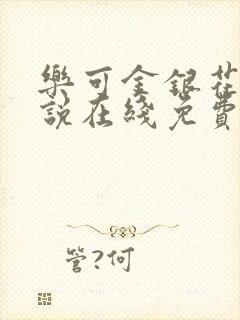 樂可金銀花
說在綫免費
管?何